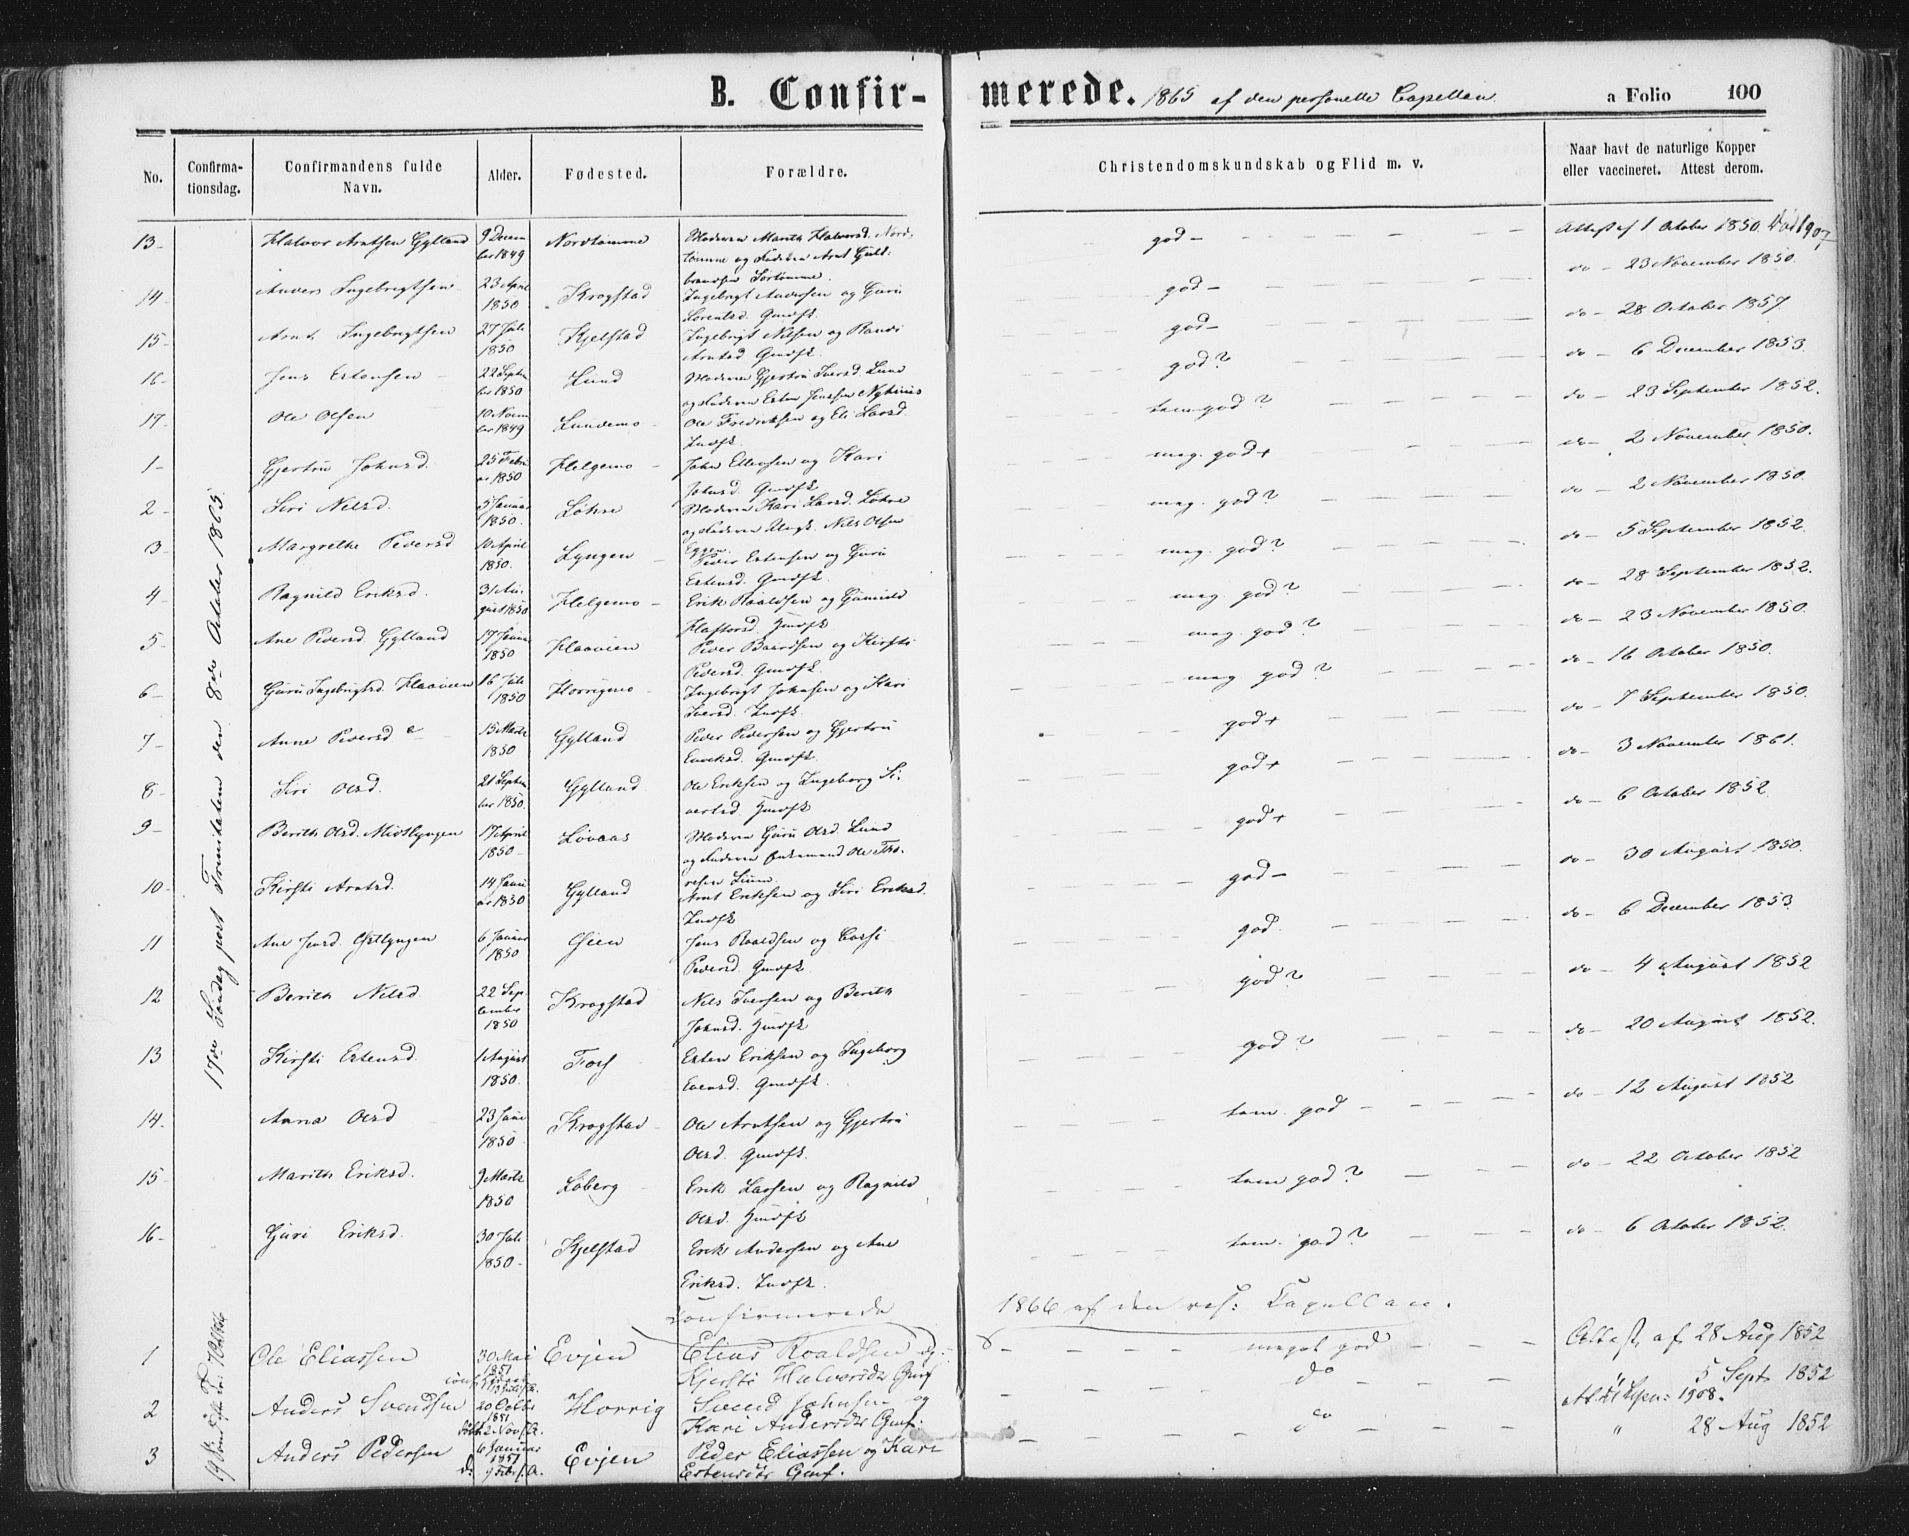 B. Confir-
merede. 1865 af den personelle Capellan. a Folio 100
No.
Confirma-
tionsdag.
Confirmandens fulde
Navn.
Alder.
Fødested.
Forældre.
Christendomskundskab og Flid m. v.
Naar havt de naturlige Kopper
eller vaccineret. Attest derom.
17de Søndag post Trinitatem den 8de October 1865
13 Halvor Arntsen Gylland 9 Decem
ber 1849 Nordtømme Moderen Marith Halvorsd. Nord-
tømme og Faderen Arnt Guld-
brandsen Sørtømme. god - Attest af 1 October 1850. 1907
14 Anders Ingebrigtsen 23 April
1850 Krogstad Ingebrigt Andersen og Guru
Lorentsd. Gmdfk. god - do - 23 November 1850.
15 Arnt Ingebrigtsen 27 Juli
1850 Kjelstad Ingebrigt Nilsen og Randi
Arntsd. Gmdfk. god - do - 28 October 1857.
16 Jens Estensen 22 Septem
ber 1850 Lund Moderen Gjertru Iversd. Lund
og Faderen Esten Jenssen god? do - 6 December 1853.
17 Ole Olsen 10 Novem
ber 1849 Lundemo Ole Fredriksen og Eli Larsd.
Indfk. tem. god? do - 23 September 1852.
1 Gjertru Johnsd. 25 Febru
ar 1850 Helgemo John Ellevsen og Kari
Johnsd. Gmdfk. meg. god + do - 2 November 1850.
2 Siri Nilsd. 5 Januar
1850. Løhre Moderen Kari Larsd. Løhre
og Faderen Nils Olsen
Eggen. meg. god? do - 2 November 1850.
3 Margrethe Pedersd 10 April
1850. Lyngen Peder Estensen og Guru
Estensd. Gmdfk. meg. god? do - 5 September 1852.
4 Ragnild Eriksd. 31 Au
gust 1850 Helgemo Erik Roaldsen og Gunild
Haftorsd. Hmdfk meg. god? do - 28 September 1852.
5 Ane Pedersd. Gylland 17 Janu
1850 Haavien Peder Baardsen og Kirsti
Pedersd. Gmdfk. meg. god? do - 23 November 1850.
6 Guru Ingebrigtsd. Haavien 16 Juli
1850 Horrigmo Ingebrigt Johnsen og Kari
Iversd. Indfk. meg god? do - 16 October 1850.
7 Anne Pedersd 15 Marts
1850 Gylland Peder Pedersen og Gjertru
Gmdfk. god + do - 7 September 1850.
8 Siri Olsd. 21 Septem
ber 1850. Gylland Ole Eriksen og Ingeborg Si-
vertsd. Hmdfk god + do - 3 November 1861.
9 Berith Olsd. Midtlyngen 17 April
1850 Løvaas Moderen Guru Olsd. Lund
og Faderen Ole Tho-
resen god + do - 6 October 1852.
10 Kirsti Arntsd. 14 Janu
ar 1850 Gylland Arnt Eriksen og Siri Eriksd.
Indfk god - do - 30 August 1850.
11 Ane Jensd. Østlyngen 6 Januar
1850 Øien Jens Roaldsen og
Pedersd. Gmdfk. god. do - 6 December 1853.
12 Berith Nilsd 22 Sep
tember
1850 Krogstad Nils Iversen og Berith
Johnsd. Hmdfk god? do - 4 August 1852
13 Kirsti Estensd. 1 August
1850. Fos Esten Eriksen og Ingeborg
Evensd. Gmdfk. god? do - 20 August 1852.
14. Anna Olsd 23 Juni
1850 Krogstad Ole Arntsen og Gjertru
Olsd. Gmdfk. tem. god - do - 12 August 1852
15 Marith Eriksd. 9 Marts
1850 Løberg Erik Larsen og Ragnild
Olsd. Hmdfk tem god? do - 22 October 1852
16 Guri Eriksd. 30 Juli
1850 Kjelstad Erik Andersen og Ane
Eriksd. Indfk. tem. god? do - 6 October 1852.
Confirmerede 1866 af den res: Capellan.
1 Ole Eliassen 30 Mai
1851 Evjen Elias Roaldsen og
Kjersti Halvorsdr Gmf meget god Attest af 28 Aug 1852
2 Anders Svendsen 20 Octbr
1851
2 Nov f.A. Horrig Svend Johnsen og
Kari Andersdr Gmf. do 5 Sept 1852
1908.
3 Anders Pedersen 6 Januar
1851
Febr. f. A. Evjen Peder Eliassen og Kari
Estensdr Gmf. do " 28 Aug 1852